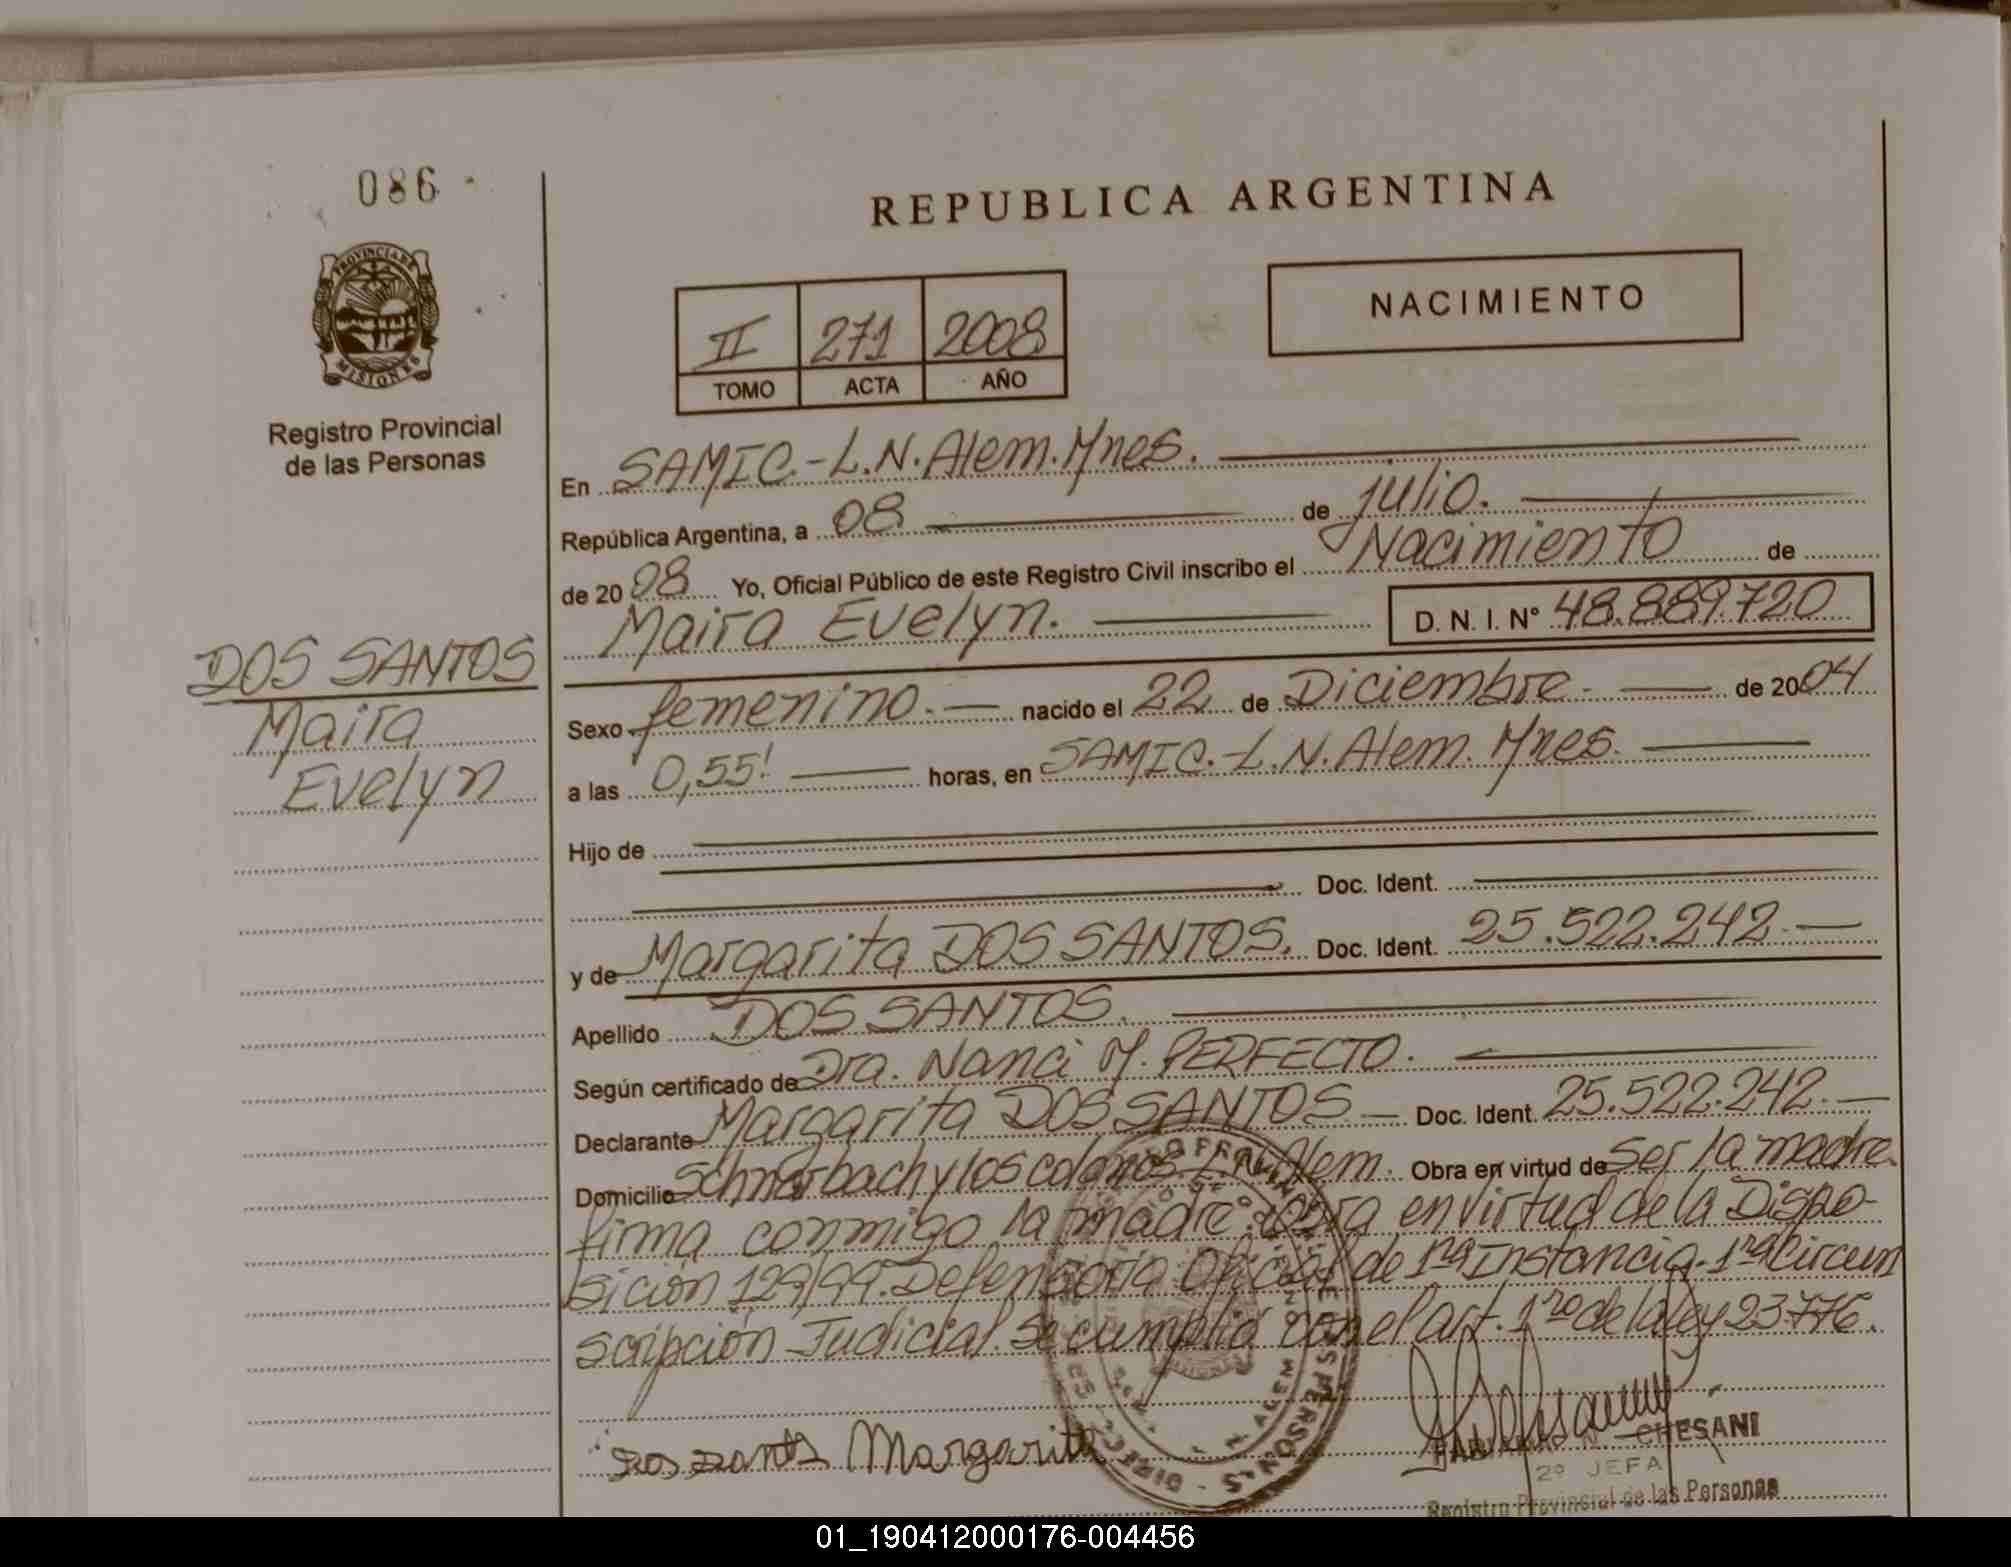 086
PROVINCIA DE
MISIONES
Registro Provincial
de las Personas
DOS SANTOS
Maira
Evelyn
REPUBLICA ARGENTINA
NACIMIENTO
II 271 2008
TOMO ACTA AÑO
En SAMIC.-L.N.Alem.Mnes.
República Argentina, a 08 de julio.
de 20 08 Yo, Oficial Público de este Registro Civil inscribo el Nacimiento de
Maira Evelyn. D. N. I. N° 48.889.720
Sexo femenino.- nacido el 22 de Diciembre.- de 2004
a las 0,55' horas, en SAMIC.-L.N.Alem. Mnes.
Hijo de
Doc. Ident.
y de Margarita DOS SANTOS. Doc. Ident. 25.522.242.-
Apellido DOS SANTOS.
Según certificado de Dra. Nanci M. PERFECTO.
Declarante Margarita DOS SANTOS.- Doc. Ident. 25.522.242.-
Domicilio y los colonos L.N.Alem. Obra en virtud de ser la madre.
firma conmigo la madre. obra en virtud de la Dispo-
sición 129/99. Defensoría Oficial de 1ra Instancia. 1ra Circun
scripción Judicial. Se cumplió con el art. 1ro de la ley 23.776.
Dos Santos Margarita
CHESANI
2º JEFA
Registro Provincial de las Personas
01_190412000176-004456